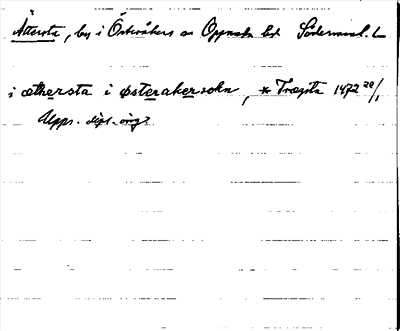 Ättersta, by i Österåkers sn Oppunda hd Södermanl. L
i æthersta i østerakersokn, * Træsta 1472 20/1
Upps. dipl. orig.